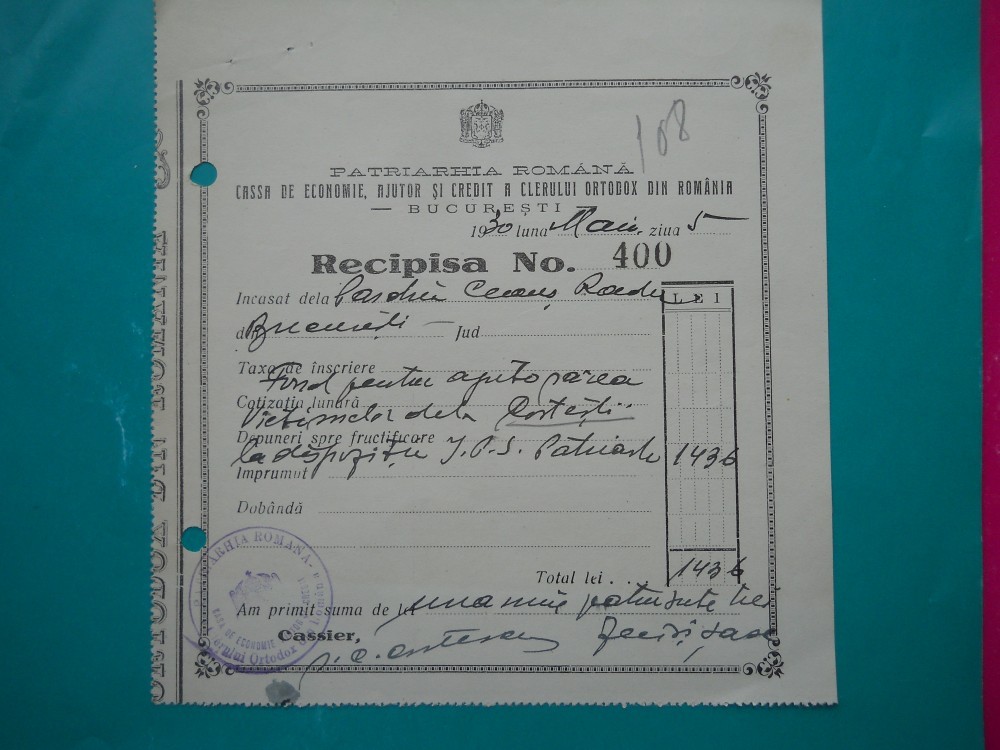 108
PATRIARHIA ROMÂNĂ
CASSA DE ECONOMIE, AJUTOR ȘI CREDIT A CLERULUI ORTODOX DIN ROMÂNIA
— BUCUREȘTI —
1930 luna Mai, ziua 5
Recipisa No. 400
Incasat dela
LEI
din București — Jud
Taxa de înscriere
Fond pentru ajutorarea
Cotizația lunară
Victimelor dela Costești
Depuneri spre fructificare
la dispoziția I.P.S. Patriarh 1436
Imprumut
Dobândă
Total lei . . . 1436
Am primit suma de lei una mie patru sute trei
zeci și șase
Cassier,
PATRIARHIA ROMÂNĂ
CASA DE ECONOMIE
Clerului Ortodox